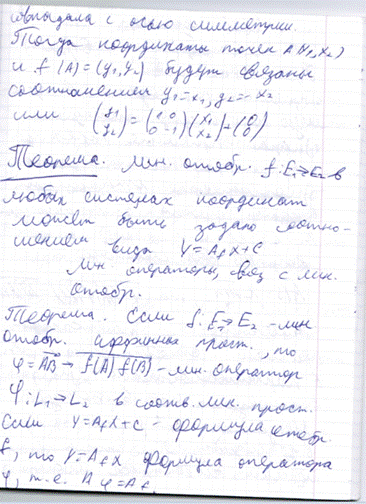 совпадала с осью симметрии.
Тогда координаты точек A(x₁,x₂)
и f(A)=(y₁,y₂) будут связаны
соотношением y₁=x₁, y₂=-x₂
или (y₁ y₂)=(1 0 0 -1)(x₁ x₂)+(0 0)
Теорема. Лин. отобр. f:E₁→E₂ в
любых системах координат
может быть задано соотно-
шением вида Y=A_fX+C
Лин. операторы, связ с лин.
отобр.
Теорема. Если f:E₁→E₂ -лин
отобр. аффинных прост., то
φ=AB→f(A)f(B)-лин. оператор
φ:L₁→L₂ в соотв. лин. прост.
Если Y=A_fX+C- формула отобр.
f, то Y=A_fX формула оператора
φ, т.е. A_φ=A_f.